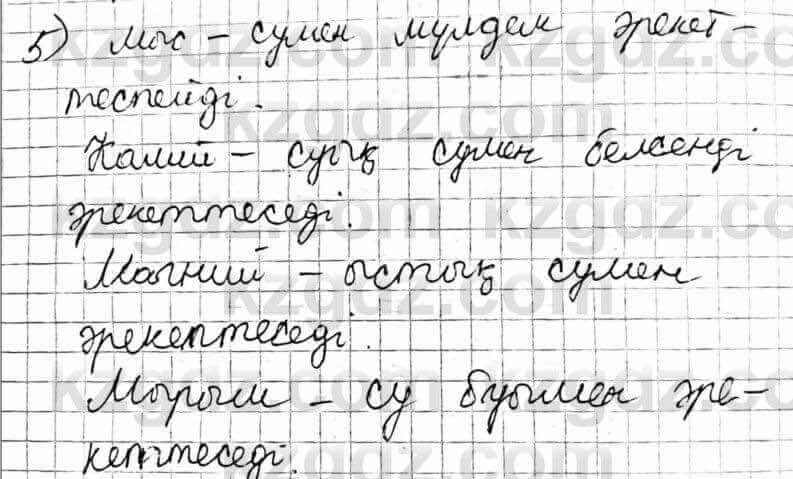 5) Мыс - сумен мүлдем әрекет-
теспейді.
Калий - суық сумен белсенді
әрекеттеседі.
Магний - ыстық сумен
әрекеттеседі.
Мырыш - су буымен әре-
кеттеседі.
kzgdz.com